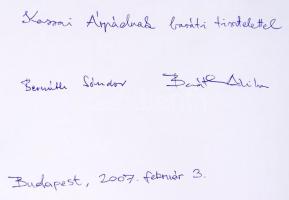 Kassai Árpádnak baráti tisztelettel
Bernáth Sándor
Budapest, 2007. február 3.